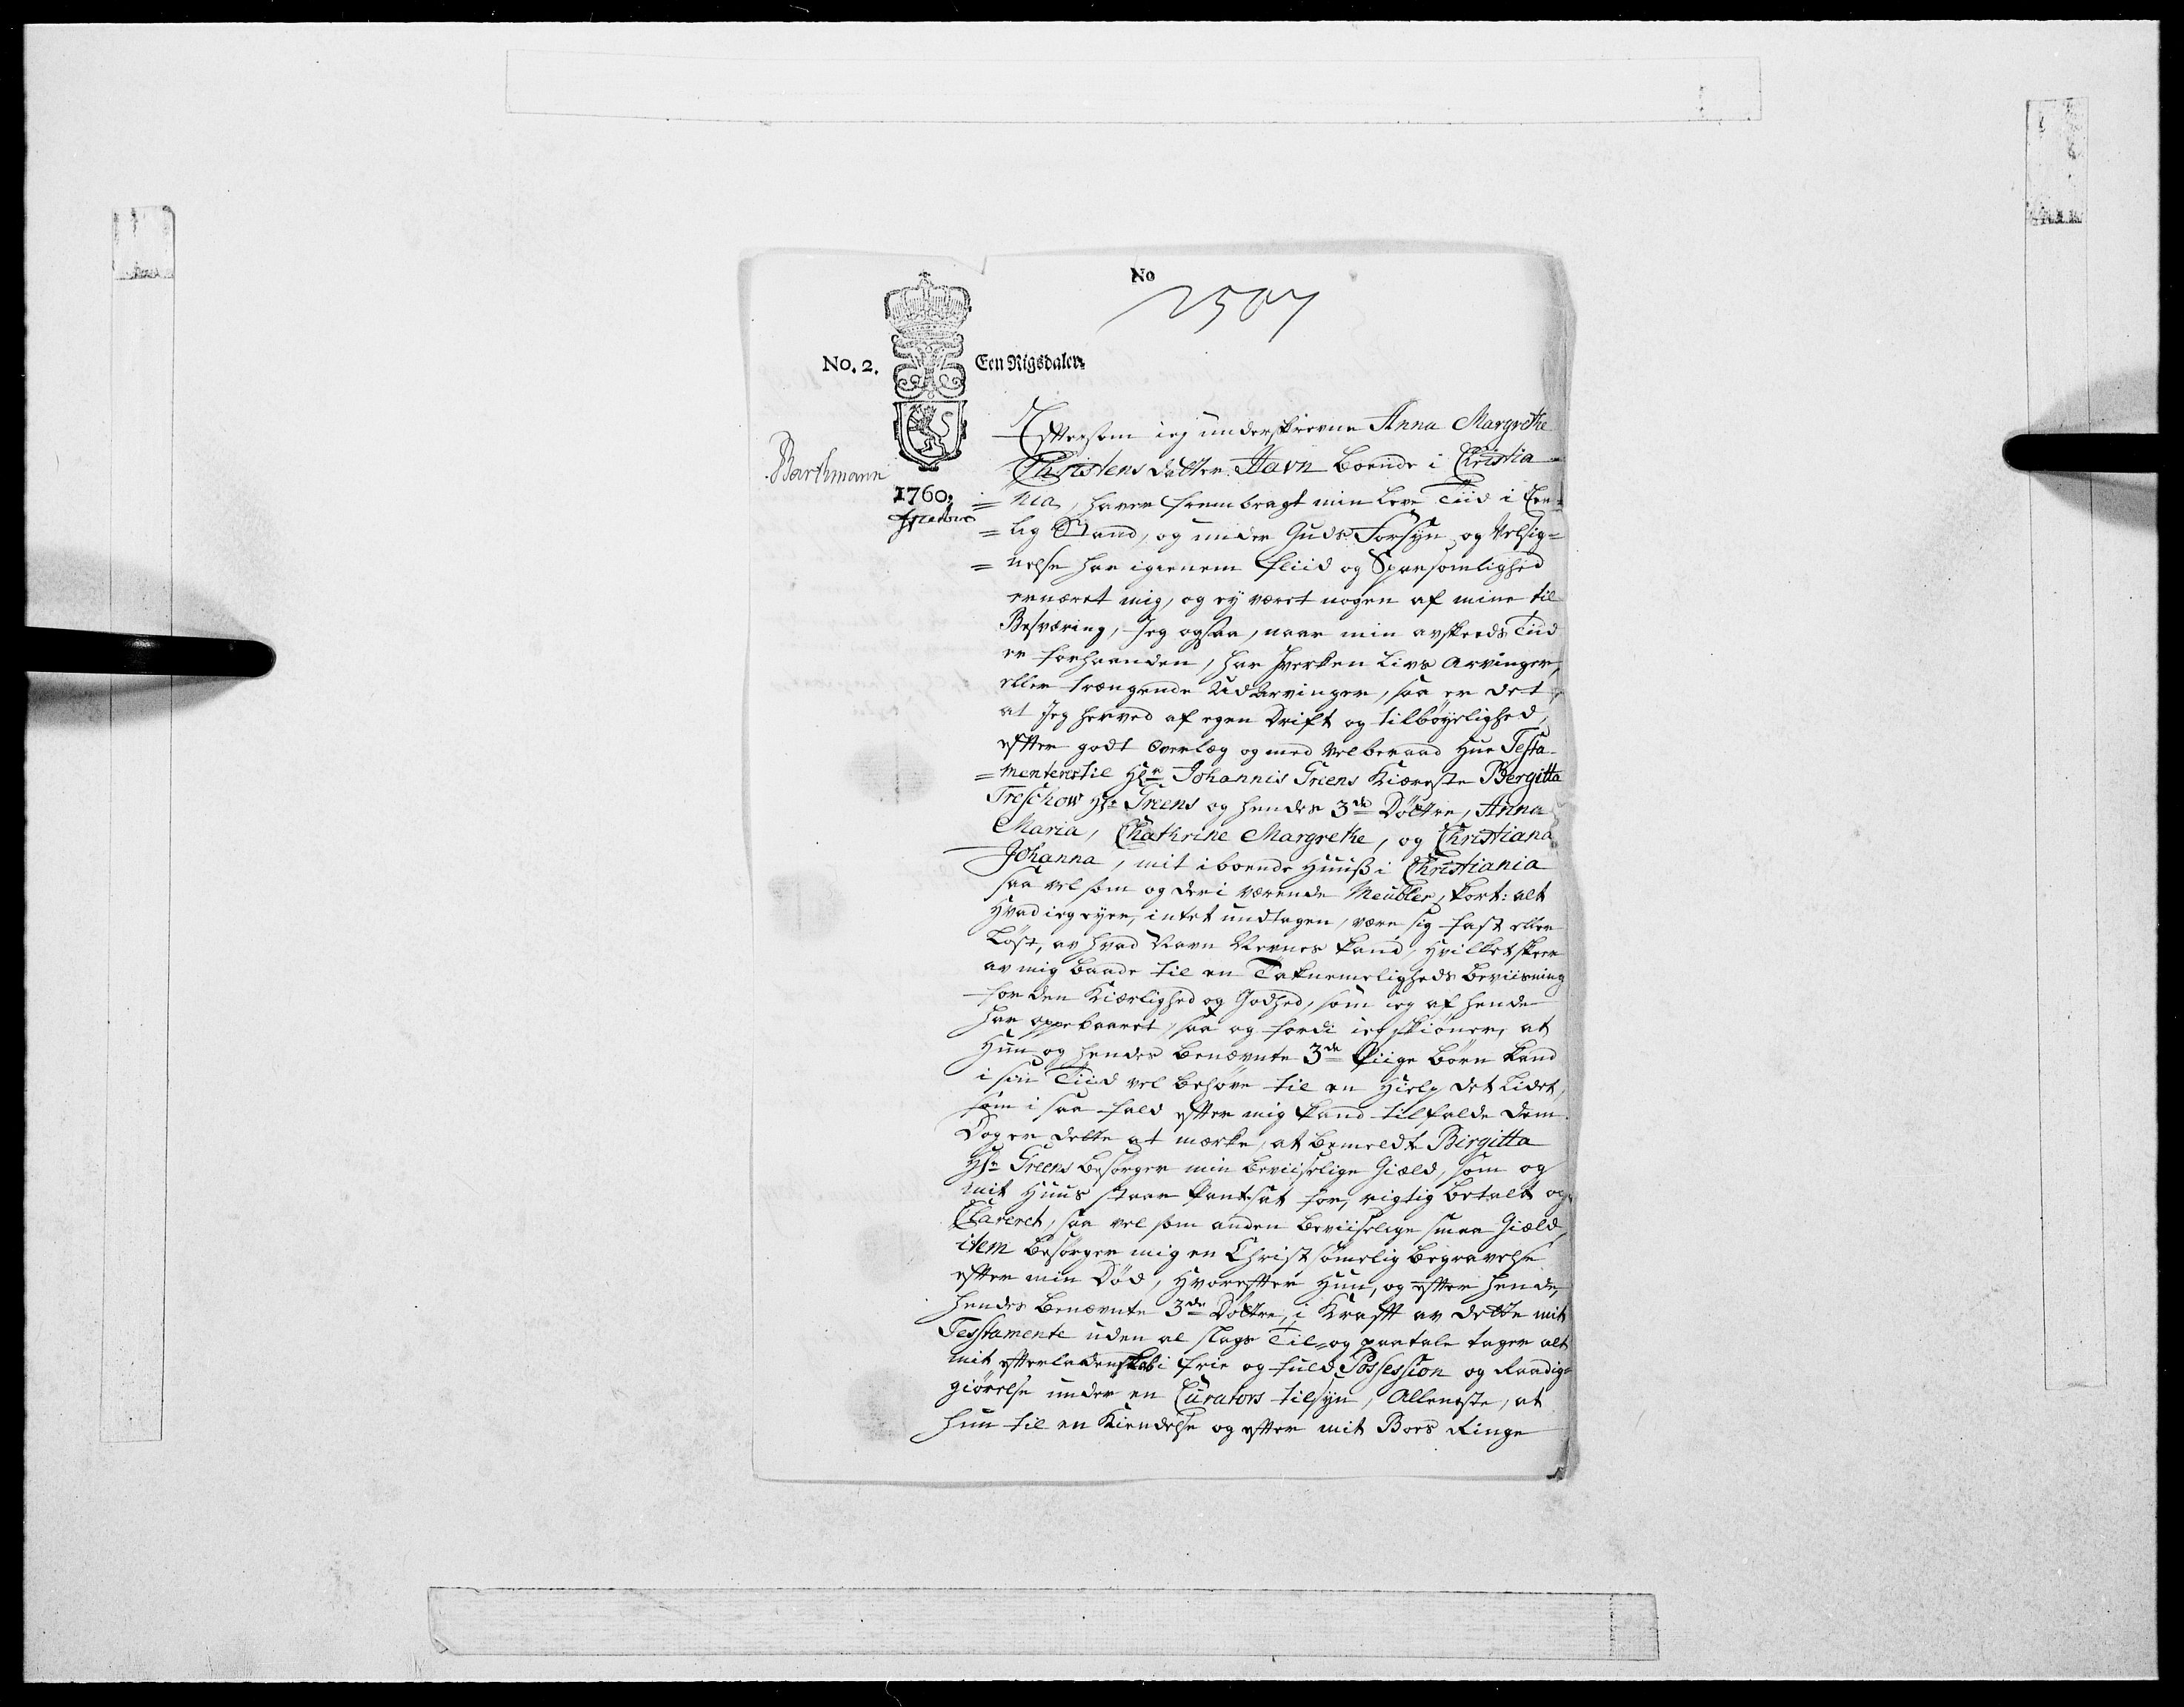 No
2507
No. 2.
Een Rigsdaler.
Barthmann
1760.
Eftersom ieg underskrevne Anna Margrethe
Christens datter Havn boende i Christia-
=nia, haver frembragt min leve Tiid i Een=
=lig Stand, og under Guds Forsyn og Velsig=
=nelse har igiennem fliid og Sparsomlighed
ernæret mig, og ey været nogen af mine til
Besværing, Jeg ogsaa, naar min avskeeds Tiid
er forhaanden, har hverken livs arvinger,
eller trængende Udarvinger, saa er det
at Jeg herved af egen Drift og tilböyelighed,
efter godt Overlæg og med velberaad Hue Testa-
=menterer til Hr Johannis Greens Kiæreste Bergitta
Treschow Sl: Greens og hendes 3de Döttre, Anna
Maria, Chathrine Margrethe, og Christiana
Johanna, mit iboende Huuss i Christiania
saa vel som og deri værende Meubler, kort: alt
hvad ieg eyer, intet undtagen, være sig fast eller
Löst, av hvad Navn Nevnes kand, hvilket skeer
av mig baade til en Taknemeligheds Beviisning
for den Kiærlighed og Godhed, som ieg af hende
har oppebaaret, saa og fordi ieg skiönner, at
Hun og hendes benævnte 3de Piige Börn kand
i sin Tiid vel behöve til en Hielp det Lidet,
som i saa fald efter mig kand tilfalde dem.
Dog er dette at mærke, at bemeldte Birgitta
Sl: Greens besörger min beviislige Giæld, som og
mit Huus staar Pantsat for, rigtig betalt og
Clareret, saa vel som anden beviislige smaa Giæld,
item besörger mig en Christsömelig begravelse
efter min Död, hvorefter Hun, og efter hende,
hendes benævnte 3de Döttre, i Kraft av dette mit
Testamente uden al slags Til- og paatale tager alt
mit efterladenskab i frie og fuld Possession og Raadig=
giörelse under en Curators tilsyn, Alleneste, at
hun til en Kiendelse og efter mit Boes Ringe